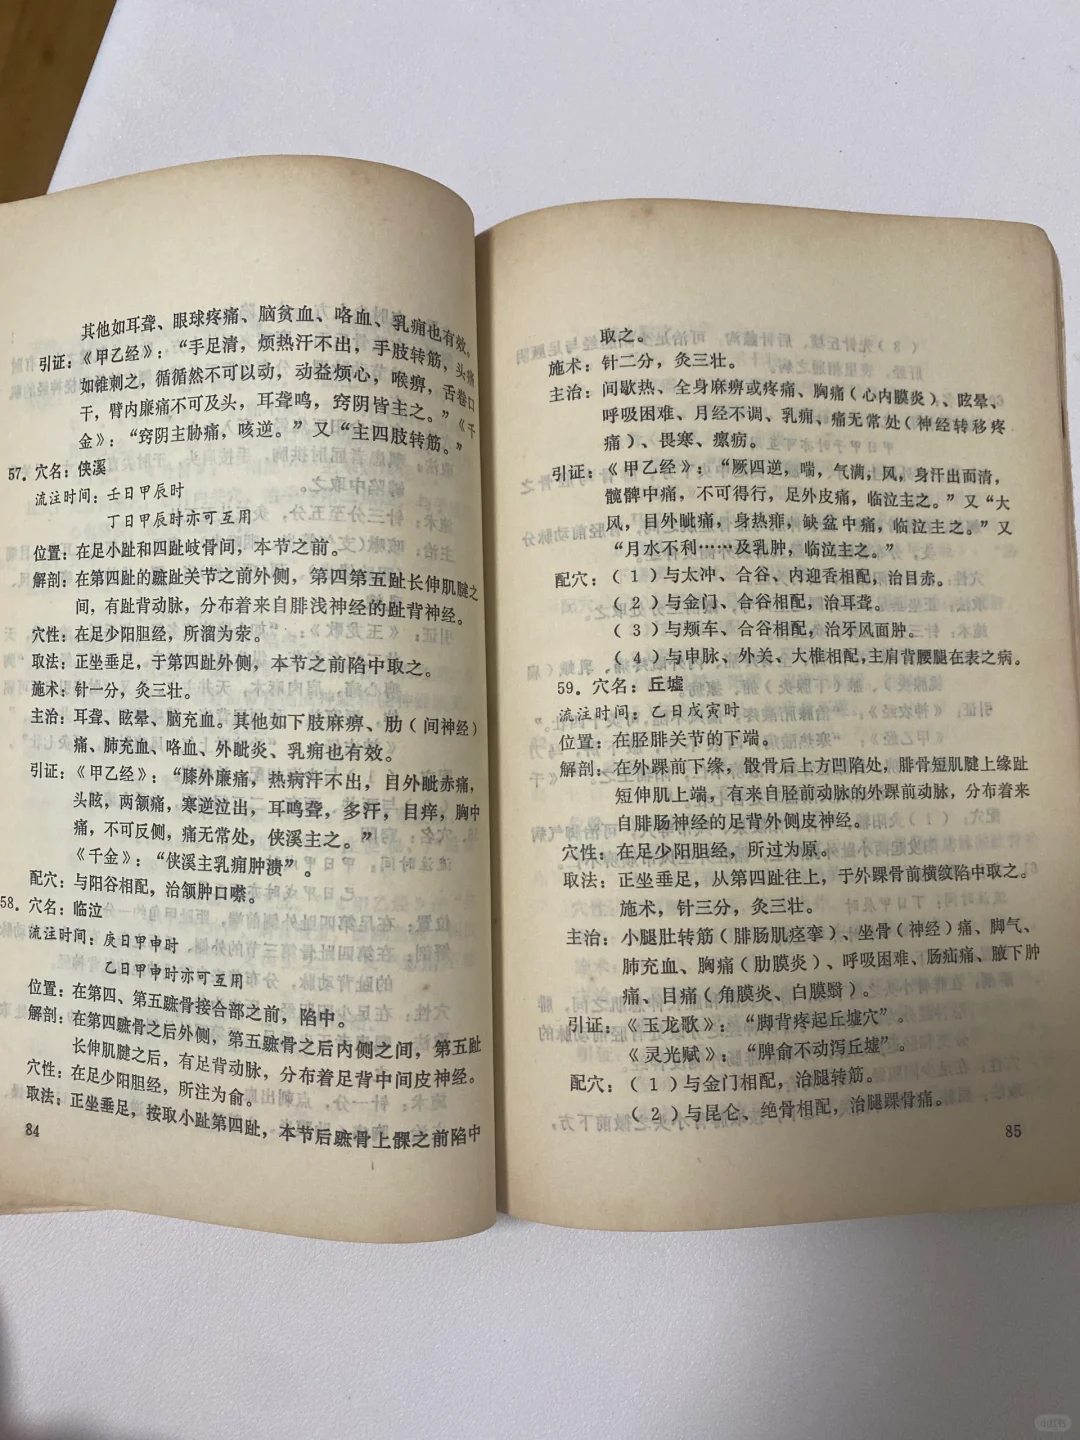 其他如耳聋、眼球疼痛、脑贫血、咯血、乳痈也有效。
引证：《甲乙经》：“手足清，烦热汗不出，手肢转筋，头痛
如锥刺之，循循然不可以动，动益烦心，喉痹，舌卷口
干，臂内廉痛不可及头，耳聋鸣，窍阴皆主之。”《千
金》：“窍阴主胁痛，咳逆。”又“主四肢转筋。”
57．穴名：侠溪
流注时间：壬日甲辰时
丁日甲辰时亦可互用
位置：在足小趾和四趾歧骨间，本节之前。
解剖：在第四趾的蹠趾关节之前外侧，第四第五趾长伸肌腱之
间，有趾背动脉，分布着来自腓浅神经的趾背神经。
穴性：在足少阳胆经，所溜为荥。
取法：正坐垂足，于第四趾外侧，本节之前陷中取之。
施术：针一分，灸三壮。
主治：耳聋、眩晕、脑充血。其他如下肢麻痹、肋（间神经）
痛、肺充血、咯血、外眦炎、乳痈也有效。
引证：《甲乙经》：“膝外廉痛，热病汗不出，目外眦赤痛，
头眩，两颔痛，寒逆泣出，耳鸣聋，多汗，目痒，胸中
痛，不可反侧，痛无常处，侠溪主之。”
《千金》：“侠溪主乳痈肿溃”。
配穴：与阳谷相配，治颔肿口噤。
58．穴名：临泣
流注时间：庚日甲申时
乙日甲申时亦可互用
位置：在第四、第五蹠骨接合部之前，陷中。
解剖：在第四蹠骨之后外侧，第五蹠骨之后内侧之间，第五趾
长伸肌腱之后，有足背动脉，分布着足背中间皮神经。
穴性：在足少阳胆经，所注为俞。
取法：正坐垂足，按取小趾第四趾，本节后蹠骨上髁之前陷中
84
取之。
施术：针二分，灸三壮。
主治：间歇热、全身麻痹或疼痛、胸痛（心内膜炎）、眩晕、
呼吸困难、月经不调、乳痈、痛无常处（神经转移疼
痛）、畏寒、瘰疬。
引证：《甲乙经》：“厥四逆，喘，气满；风，身汗出而清，
髋髀中痛，不可得行，足外皮痛，临泣主之。”又“大
风，目外眦痛，身热痱，缺盆中痛，临泣主之。”又
“月水不利……及乳肿，临泣主之。”
配穴：（1）与太冲、合谷、内迎香相配，治目赤。
（2）与金门、合谷相配，治耳聋。
（3）与颊车、合谷相配，治牙风面肿。
（4）与申脉、外关、大椎相配，主肩背腰腿在表之病。
59．穴名：丘墟
流注时间：乙日戊寅时
位置：在胫腓关节的下端。
解剖：在外踝前下缘，骰骨后上方凹陷处，腓骨短肌腱上缘趾
短伸肌上端，有来自胫前动脉的外踝前动脉，分布着来
自腓肠神经的足背外侧皮神经。
穴性：在足少阳胆经，所过为原。
取法：正坐垂足，从第四趾往上，于外踝骨前横纹陷中取之。
施术，针三分，灸三壮。
主治：小腿肚转筋（腓肠肌痉挛）、坐骨（神经）痛、脚气、
肺充血、胸痛（肋膜炎）、呼吸困难、肠疝痛、腋下肿
痛、目痛（角膜炎、白膜翳）。
引证：《玉龙歌》：“脚背疼起丘墟穴”。
《灵光赋》：“脾俞不动泻丘墟”。
配穴：（1）与金门相配，治腿转筋。
（2）与昆仑、绝骨相配，治腿踝骨痛。
85
小红书